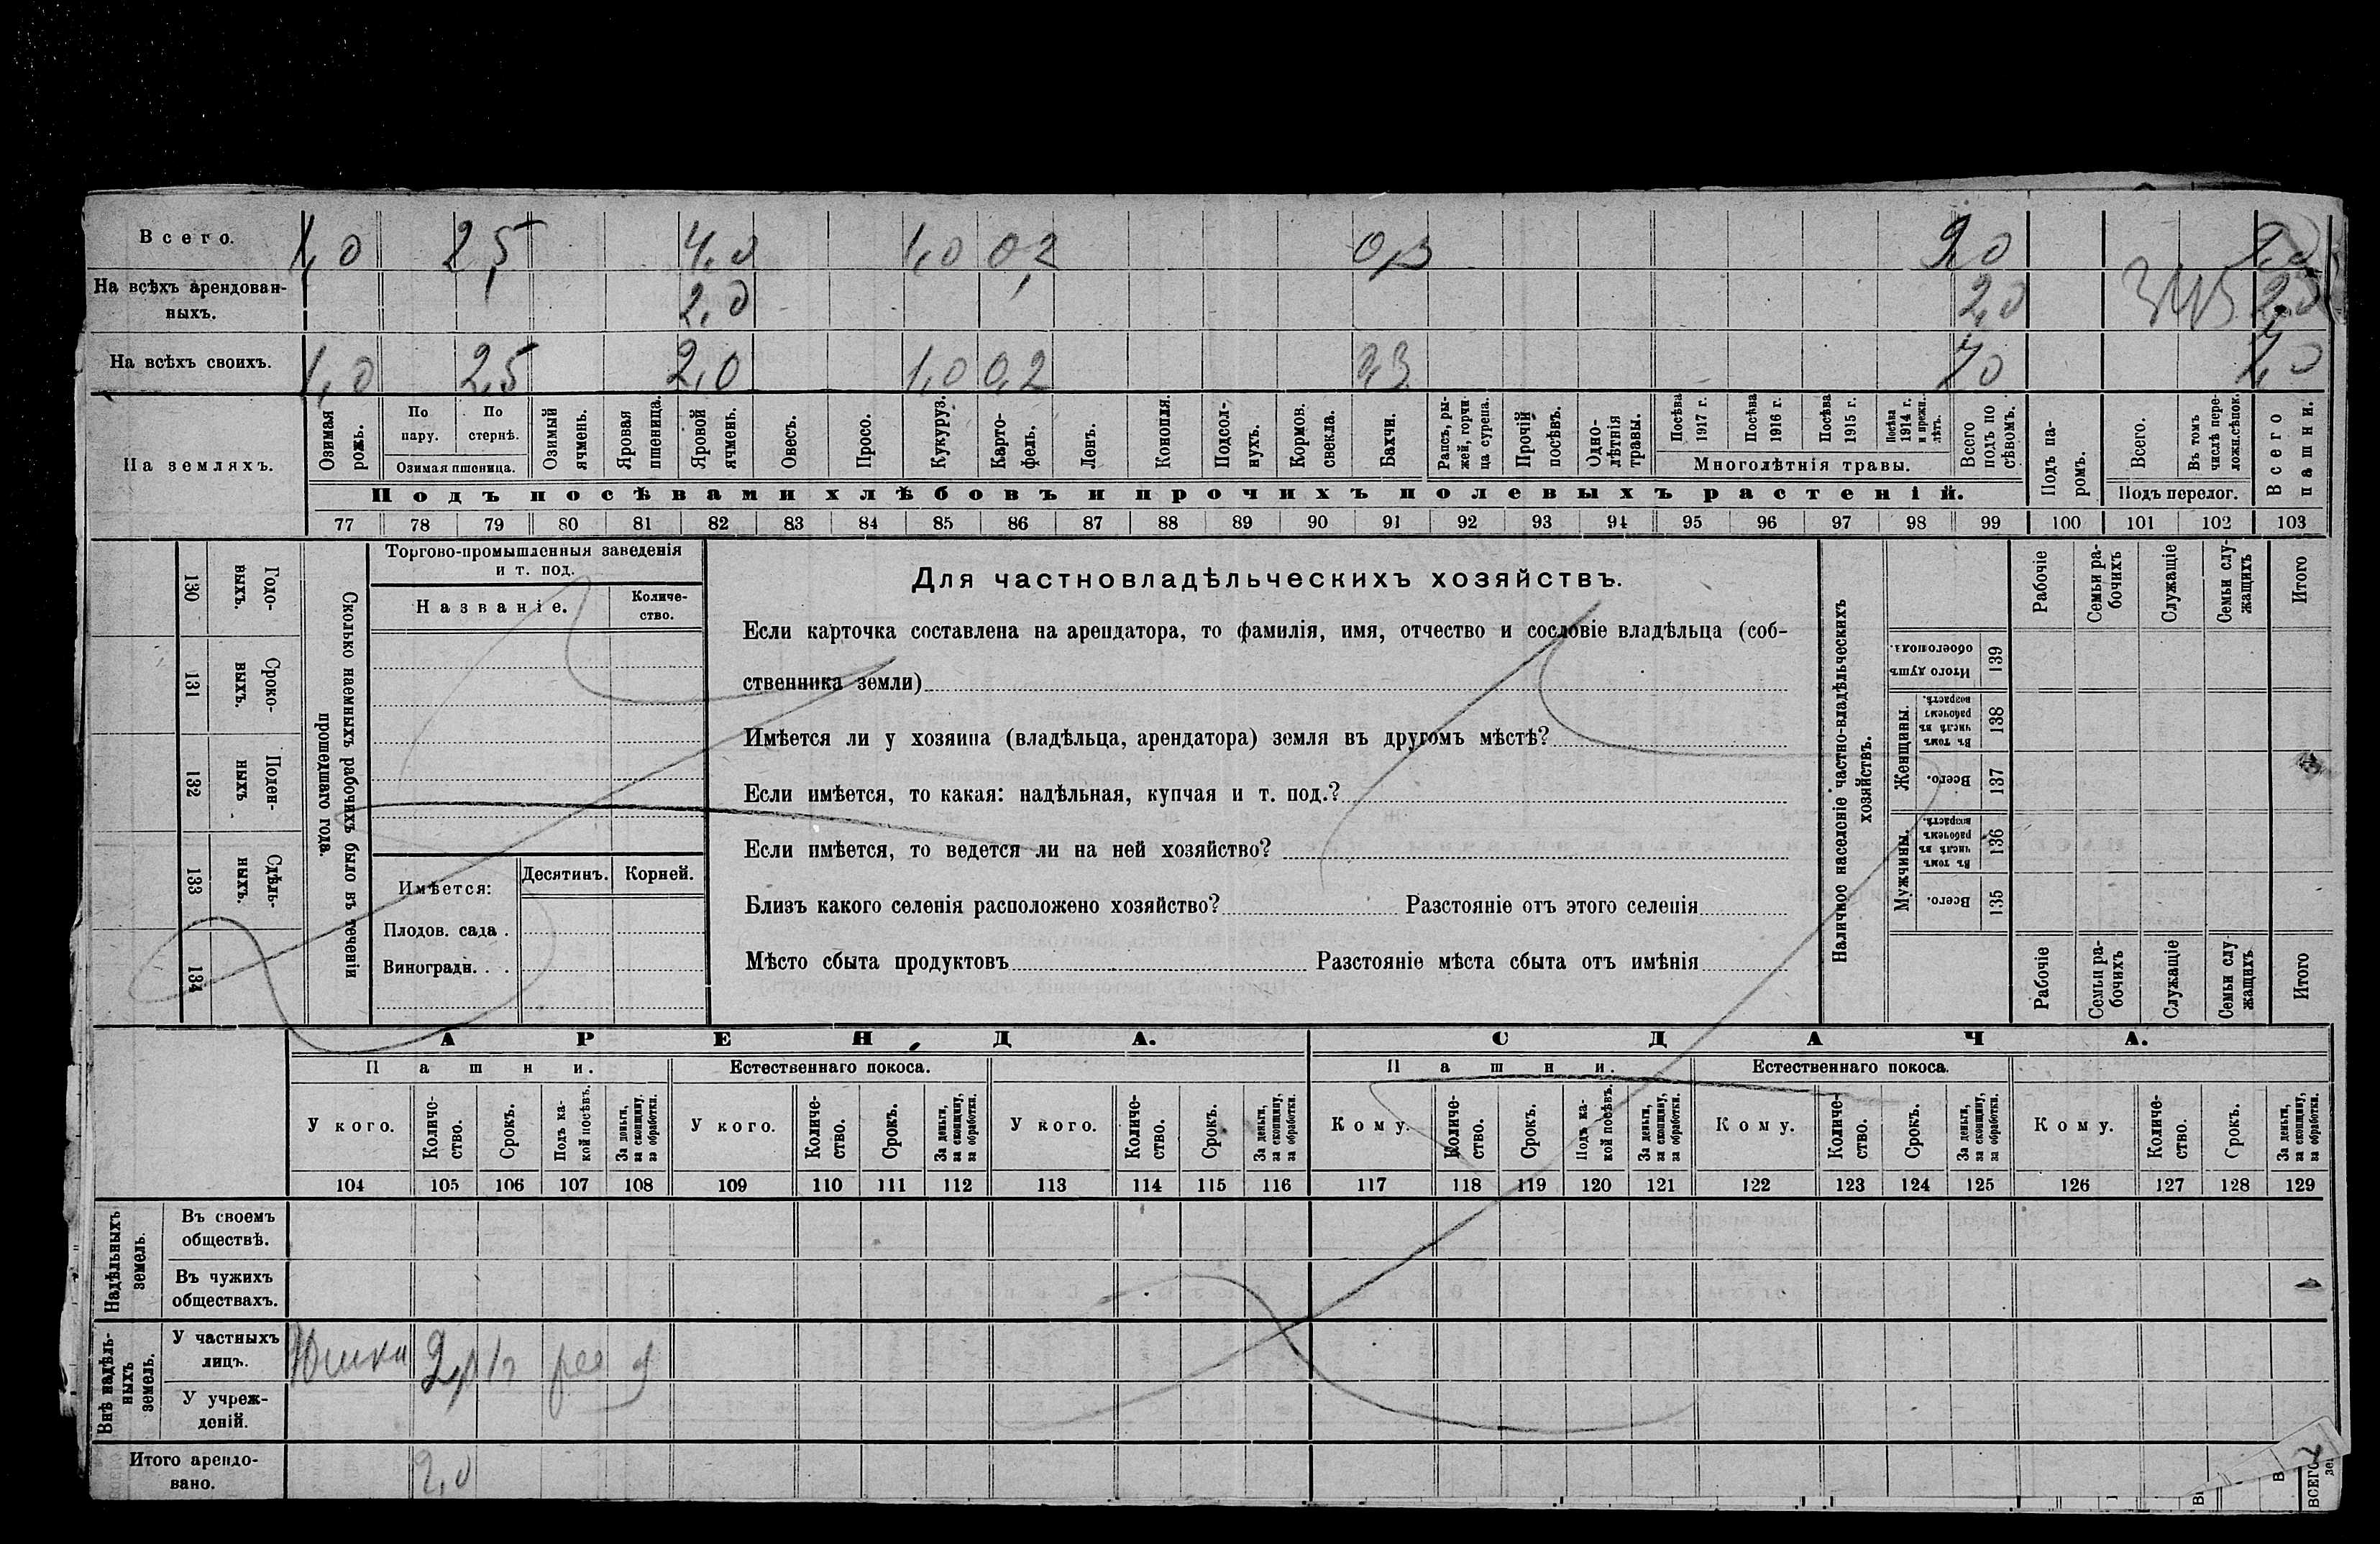 Всего. 1,0 2,5 4,0 1,0 0,2 0,3 9,0 9,0
На всѣхъ арендован-
ныхъ. 2,0 2,0 2,0
На всѣхъ своихъ. 1,0 2,5 2,0 1,0 0,2 0,3 7,0 7,0
На земляхъ.
Озимая
рожь.
По
пару.
По
стернѣ.
Озимая пшеница.
Озимый
ячмень.
Яровая
пшеница.
Яровой
ячмень.
Овесъ.
Просо.
Кукуруз.
Карто-
фель,
Ленъ.
Конопля.
Подсол-
нухъ.
Кормов.
свекла.
Бахчи.
Рапсъ, ры-
жей, горчи
ца сурепа.
Прочій
посѣвъ.
Одно-
лѣтнія
травы.
Посѣва
1917 г.
Посѣва
1916 г.
Посѣва
1915 г.
Посѣва
1914 г.
и прежн.
лѣтъ.
Многолѣтнія травы.
Всего
подъ по
сѣвомъ.
Подъ па-
ромъ.
Всего.
Въ томъ
числѣ пере-
ложн.сѣнок.
Подъ перелог.
Всего
пашни.
Подъ посѣвами хлѣбовъ и прочихъ полевыхъ растеній.
77 78 79 80 81 82 83 84 85 86 87 88 89 90 91 92 93 94 95 96 97 98 99 100 101 102 103
130
Годо-
выхъ.
131
Сроко-
выхъ.
132
Поден-
ныхъ
133
Сдѣль-
ныхъ.
134
Сколько наемныхъ рабочихъ было въ теченіи
прошедшаго года.
Торгово-промышленныя заведенія
и т. под.
Названіе.
Количе-
ство.
Имѣется:
Десятин.
Корней.
Плодов. сада .
Виноградн. . .
Для частновладѣльческихъ хозяйствъ.
Если карточка составлена на арендатора, то фамилія, имя, отчество и сословіе владѣльца (соб-
ственника земли)
Имѣется ли у хозяина (владѣльца, арендатора) земля въ другомъ мѣстѣ?
Если имѣется, то какая: надѣльная, купчая и т. под.?
Если имѣется, то ведется ли на ней хозяйство?
Близъ какого селенія расположено хозяйство? Разстояніе отъ этого селенія
Мѣсто сбыта продуктовъ Разстояніе мѣста сбыта отъ имѣнія
Наличное населеніе частно-владѣльческихъ
хозяйствъ.
Рабочіе
Семьи ра-
бочихъ
Служащіе
Семьи слу-
жащихъ
Итого
Итого душъ
обоего пола.
139
Женщины.
Въ томъ
числѣ въ
рабочемъ
возрастѣ.
138
Всего.
137
Мужчины.
Въ томъ
числѣ въ
рабочемъ
возрастѣ.
136
Всего.
135
Рабочіе
Семьи ра-
бочихъ
Служащіе
Семьи слу-
жащихъ
Итого
АРЕНДА. СДАЧА.
Пашни. Естественнаго покоса. Пашни. Естественнаго покоса.
У кого.
Количе-
ство.
Срокъ.
Подъ ка-
кой посѣвъ.
За деньги,
за скопщину,
за обработки.
У кого.
Количе-
ство.
Срокъ.
За деньги,
за скопщину,
за обработки.
У кого.
Количе-
ство.
Срокъ.
За деньги,
за скопщину,
за обработки.
Кому.
Количе-
ство.
Срокъ.
Подъ ка-
кой посѣвъ.
За деньги,
за скопщину,
за обработки.
Кому.
Количе-
ство.
Срокъ.
За деньги,
за скопщину,
за обработки.
Кому.
Количе-
ство.
Срокъ.
За деньги,
за скопщину,
за обработки.
104 105 106 107 108 109 110 111 112 113 114 115 116 117 118 119 120 121 122 123 124 125 126 127 128 129
Надѣльныхъ
земель.
Въ своемъ
обществѣ.
Въ чужихъ
обществахъ.
Внѣ надѣль-
ныхъ
земель.
У частныхъ
лицъ.
У учреж-
деній.
Итого арендо-
вано. 2,0
ВСЕГО